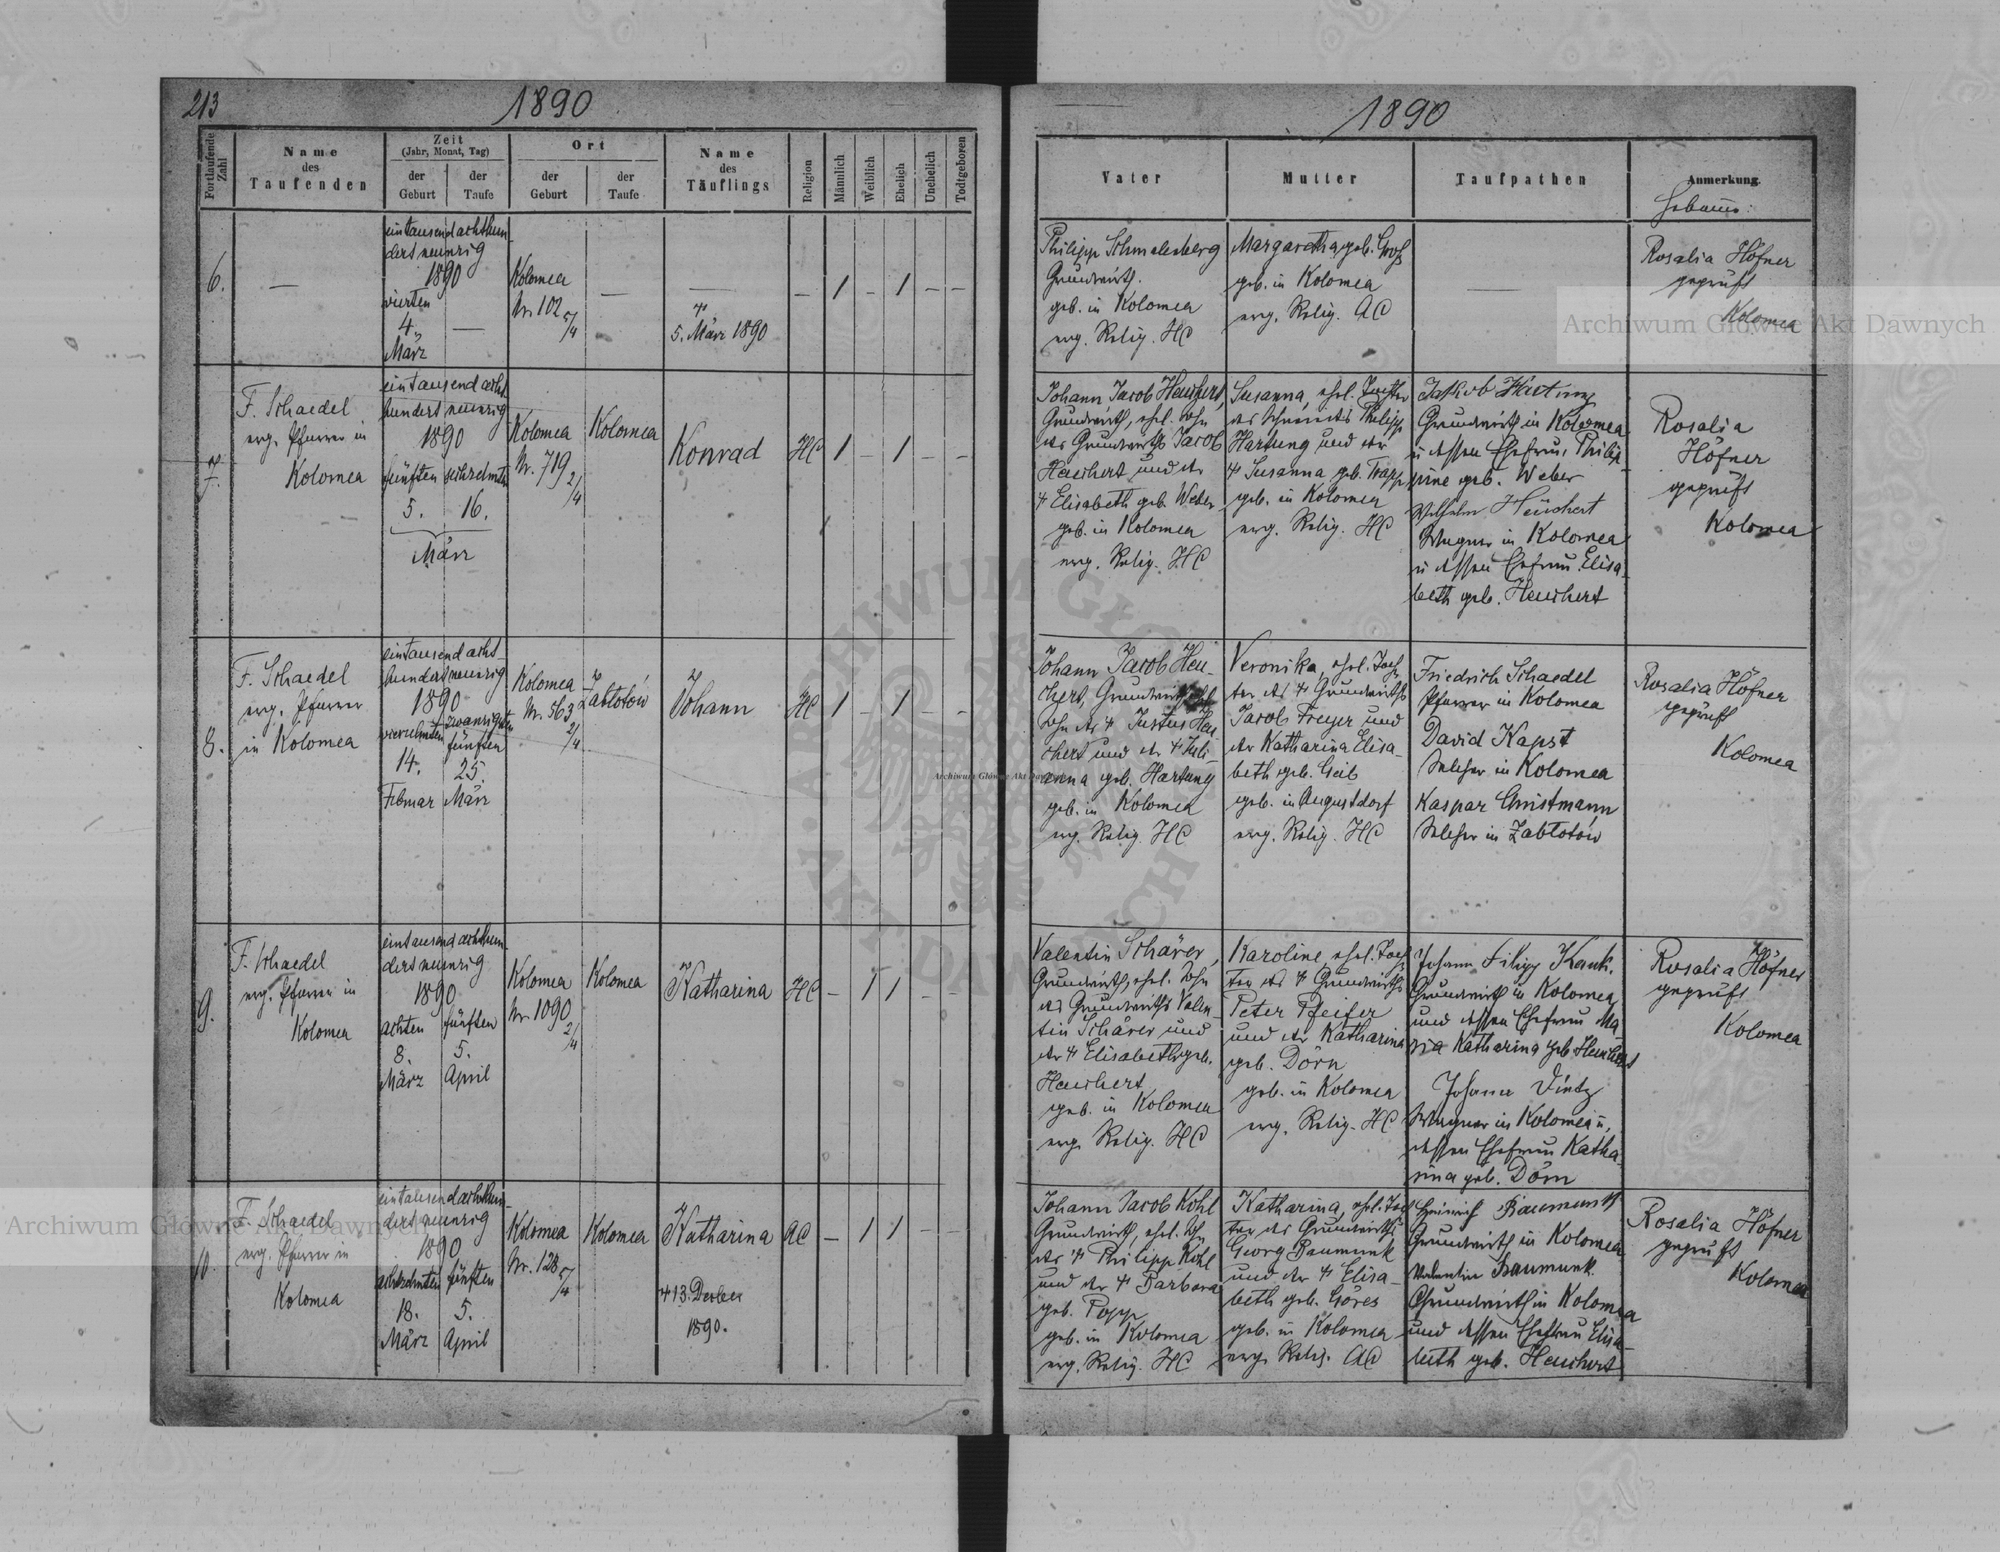 213
1890
Fortlaufende Zahl
Name des Taufenden
Zeit
(Jahr, Monat, Tag)
der Geburt
der Taufe
Ort
der Geburt
der Taufe
Name des Täuflings
Religion
Männlich
Weiblich
Ehelich
Unehelich
Todtgeboren
6.
—
eintausend achthun-
dert neunzig
1890
vierten
4.
März
—
Kolomea
Nr. 102
5/4
—
—
5. März 1890
— 1 – 1 – –
7.
F. Schaedel
evg. Pfarrer in
Kolomea
eintausend acht
hundert neunzig
1890
fünften sechzehnten
5. 16.
März
Kolomea
Nr. 719
2/4
Kolomea
Konrad
HC 1 – 1 – –
8.
F. Schaedel
evg. Pfarrer
in Kolomea
eintausend acht-
hundert neunzig
1890
vierzehnten
14.
Februar
zwanzigsten
fünften
25.
März
Kolomea
Nr. 563
2/4
Zabłotów
Johann
HC 1 – 1 – –
9.
F. Schaedel
evg. Pfarrer in
Kolomea
eintausend achthun-
dert neunzig
1890
achten fünften
8. 5.
März April
Kolomea
Nr. 1090
2/4
Kolomea
Katharina
HC – 1 1 – –
10.
F. Schaedel
evg. Pfarrer in
Kolomea
eintausend achthun-
dert neunzig
1890
achtzehnten fünften
18. 5.
März April
Kolomea
Nr. 128
5/4
Kolomea
Katharina
1890.
AC – 1 1 – –
1890
Vater
Mutter
Taufpathen
Anmerkung.
Philipp Schmalenberg
Grundwirth.
geb. in Kolomea
evg. Relig. HC
Margaretha, geb. Groß
geb. in Kolomea
evg. Relig. AC
—
Rosalia Höfner
geprüft
Kolomea
Johann Jacob Heuchert,
Grundwirth, ehel. Sohn
des Grundwirths Jacob
Heuchert und der
† Elisabeth geb. Weber
geb. in Kolomea
evg. Relig. HC
Susanna, ehel. Tochter
des Philipp
Hartung und der
† Susanna geb. Trapp
geb. in Kolomea
evg. Relig. HC
Jakob Hartung
Grundwirth in Kolomea
u dessen Ehefrau Philip-
pine geb. Weber
Wilhelm Heuchert
Wagner in Kolomea
u dessen Ehefrau Elisa-
beth geb. Heuchert
Rosalia
Höfner
geprüft
Kolomea
Johann Jacob Heu-
chert, Grundwirth, ehl.
Sohn des † Justus Heu
chert und der † Juli-
anna geb. Hartung
geb. in Kolomea
evg. Relig. HC
Veronika, ehel. Toch-
ter des † Grundwirths
Jacob Freyer und
der Katharina Elisa-
beth geb. Geib
geb. in Augustdorf
evg. Relig. HC
Friedrich Schaedel
Pfarrer in Kolomea
David Kapst
Lehrer in Kolomea
Kaspar Christmann
Lehrer in Zabłotów
Rosalia Höfner
geprüft
Kolomea
Valentin Schärer,
Grundwirth, ehel. Sohn
des Grundwirths Valen
tin Schärer und
der † Elisabeth geb.
Heuchert
geb. in Kolomea
evg. Relig. HC
Karoline, ehel. Toch-
ter des † Grundwirths
Peter Pfeifer
und der Katharina
geb. Dörn
geb. in Kolomea
evg. Relig. HC
Johann Filipp Kauk.
Grundwirth in Kolomea
und dessen Ehefrau Ma
ria Katharina geb Heuchert
Johann Dietz
Wagner in Kolomea u.
dessen Ehefrau Katha-
rina geb. Dörn
Rosalia Höfner
geprüft
Kolomea
Johann Jacob Kohl
Grundwirth, ehel. Sohn
des † Philipp Kohl
und der † Barbara
geb. Popp
geb. in Kolomea
evg. Relig. HC
Katharina, ehel. Toch
ter des Grundwirths
Georg Baumunk
und der † Elisa-
beth geb. Göres
geb. in Kolomea
evg. Relig. AC
Heinrich Baumunk
Grundwirth in Kolomea
Valentin Baumunk
Grundwirth in Kolomea
und dessen Ehefrau Elisa-
beth geb. Heuchert
Rosalia Höfner
geprüft
Kolomea
Archiwum Główne Akt Dawnych
Archiwum Główne Akt Dawnych
Archiwum Główne Akt Dawnych